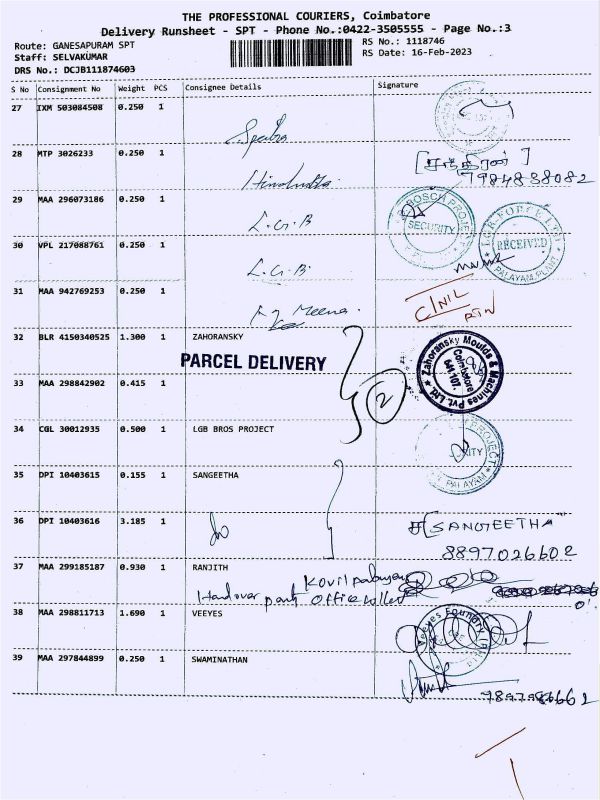 THE PROFESSIONAL COURIERS, Coimbatore
Delivery Runsheet - SPT - Phone No.:0422-3505555 - Page No.:3
Route: GANESAPURAM SPT
Staff: SELVAKUMAR
DRS No.: DCJB111874603
RS No.: 1118746
RS Date: 16-Feb-2023
S No Consignment No Weight PCS Consignee Details Signature
27 IXM 503084508 0.250 1 Spectra
28 MTP 3026233 0.250 1 [சந்திரன்]
7984838082
29 MAA 296073186 0.250 1 L.G.B
BOSCH PROJECT SECURITY
30 VPL 217088761 0.250 1 L.G.B.
LGB FORGE LTD RECEIVED PALAYAM PLANT
31 MAA 942769253 0.250 1 Meena. C/NIL
RTN
32 BLR 4150340525 1.300 1 ZAHORANSKY
PARCEL DELIVERY
2
Zahoransky Moulds & Machines Pvt. Ltd. Coimbatore 641 107.
33 MAA 298842902 0.415 1
34 CGL 30012935 0.500 1 LGB BROS PROJECT
PROJECT PALAYAM
35 DPI 10403615 0.155 1 SANGEETHA
36 DPI 10403616 3.185 1 do SANGEETHA
8897026602
37 MAA 299185187 0.930 1 RANJITH
Kovilpalayam
Handover party Office
38 MAA 298811713 1.690 1 VEEYES
Veeyes Foundry
39 MAA 297844899 0.250 1 SWAMINATHAN